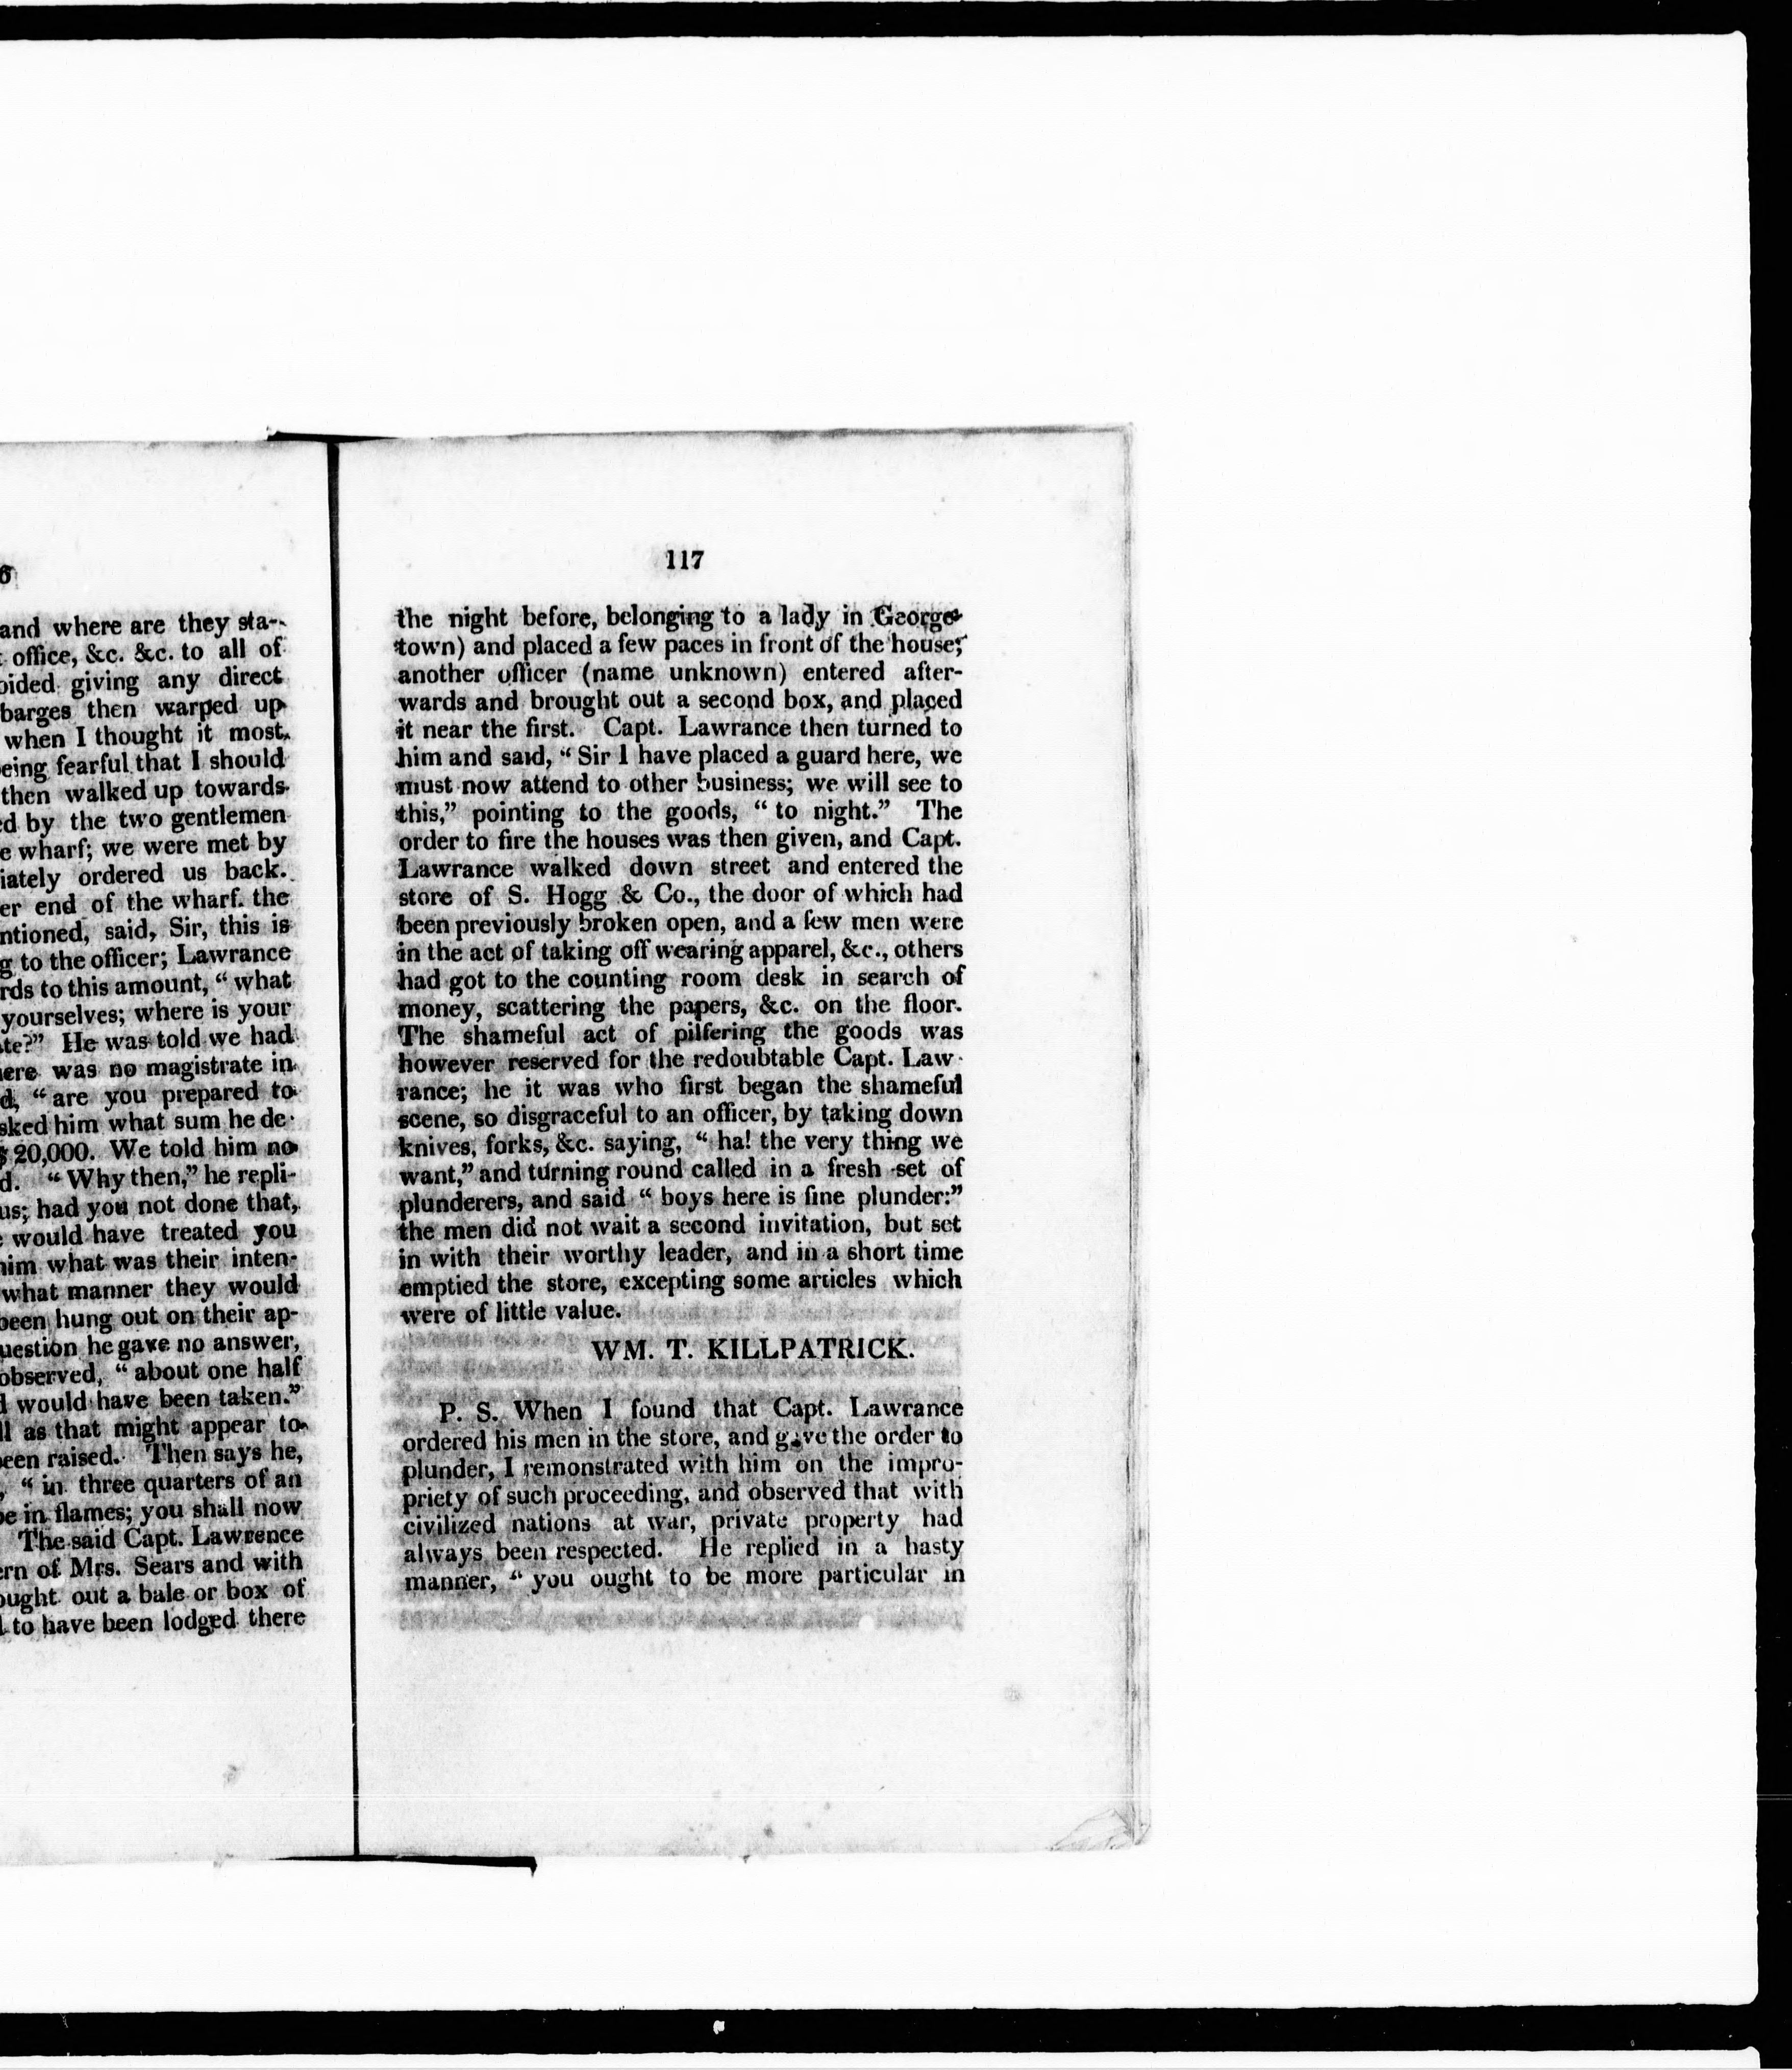 6
and where are they sta-
office, &c. &c. to all of
giving any direct
barges then warped up
when I thought it most
fearful that I should
then walked up towards
by the two gentlemen
wharf; we were met by
ordered us back.
end of the wharf. the
said, Sir, this is
to the officer; Lawrance
to this amount, “ what
yourselves; where is your
He was told we had
was no magistrate in
“ are you prepared to
him what sum he de-
$20,000. We told him no
“ Why then,” he repli-
us; had you not done that,
would have treated you
him what was their inten-
what manner they would
been hung out on their ap-
he gave no answer,
observed, “ about one half
would have been taken.”
as that might appear to
been raised. Then says he,
“ in three quarters of an
in flames; you shall now
The said Capt. Lawrence
of Mrs. Sears and with
out a bale or box of
to have been lodged there
117
the night before, belonging to a lady in George-
town) and placed a few paces in front of the house;
another officer (name unknown) entered after-
wards and brought out a second box, and placed
it near the first. Capt. Lawrance then turned to
him and said, “ Sir I have placed a guard here, we
must now attend to other business; we will see to
this,” pointing to the goods, “ to night.” The
order to fire the houses was then given, and Capt.
Lawrance walked down street and entered the
store of S. Hogg & Co., the door of which had
been previously broken open, and a few men were
in the act of taking off wearing apparel, &c., others
had got to the counting room desk in search of
money, scattering the papers, &c. on the floor.
The shameful act of pilfering the goods was
however reserved for the redoubtable Capt. Law-
rance; he it was who first began the shameful
scene, so disgraceful to an officer, by taking down
knives, forks, &c. saying, “ ha! the very thing we
want,” and turning round called in a fresh set of
plunderers, and said “ boys here is fine plunder:”
the men did not wait a second invitation, but set
in with their worthy leader, and in a short time
emptied the store, excepting some articles which
were of little value.
WM. T. KILLPATRICK.
P. S. When I found that Capt. Lawrance
ordered his men in the store, and gave the order to
plunder, I remonstrated with him on the impro-
priety of such proceeding, and observed that with
civilized nations at war, private property had
always been respected. He replied in a hasty
manner, “ you ought to be more particular in